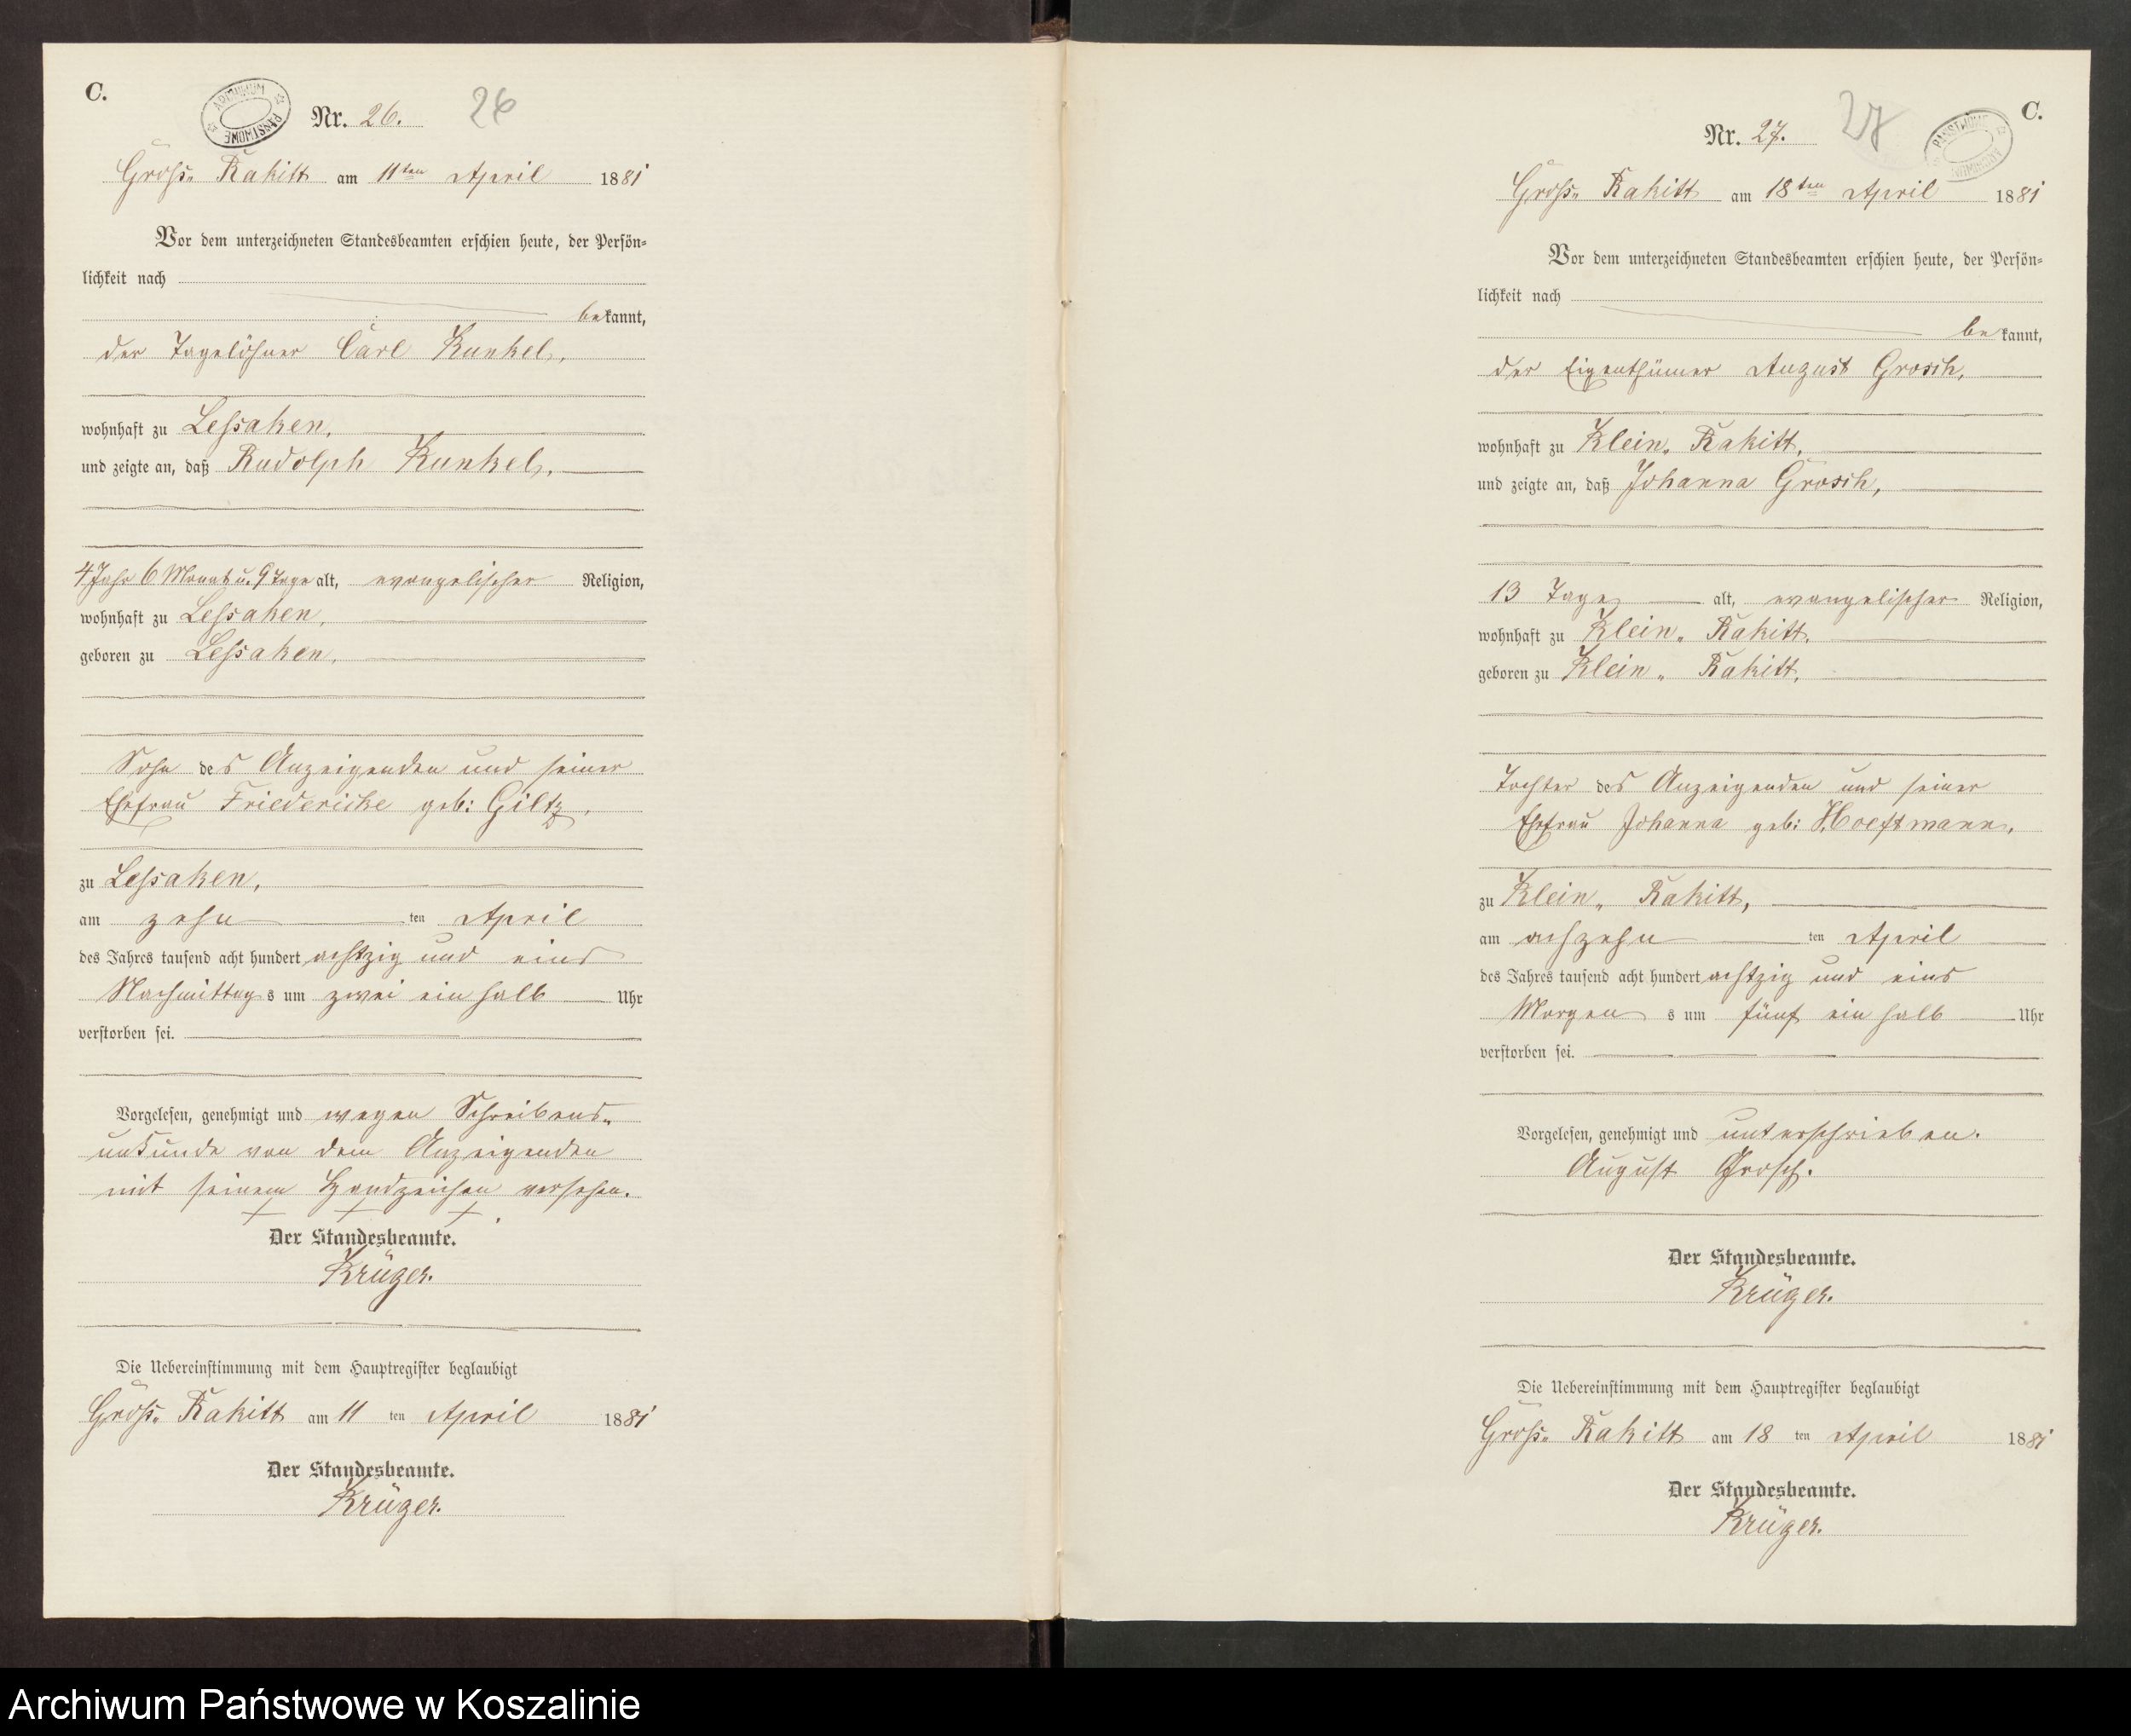 C.
ARCHIWUM PAŃSTWOWE
Nr. 26. 26
Groß„ Rakitt am 11ten April 1881
Vor dem unterzeichneten Standesbeamten erschien heute, der Persön-
lichkeit nach
bekannt,
der Tagelöhner Carl Kunkel,
wohnhaft zu Lessaken,
und zeigte an, daß Rudolph Kunkel,
4 Jahr 6 Monat u. 9 Tage alt, evangelischer Religion,
wohnhaft zu Lessaken,
geboren zu Lessaken,
Sohn des Anzeigenden und seiner
Ehefrau Friedericke geb: Giltz,
zu Lessaken,
am zehn ten April
des Jahres tausend acht hundert achtzig und eins
Nachmittags um zwei ein halb Uhr
verstorben sei.
Vorgelesen, genehmigt und wegen Schreibens„
unkunde von dem Anzeigenden
mit seinem Handzeichen versehen.
+ + +
Der Standesbeamte.
Krüger.
Die Uebereinstimmung mit dem Hauptregister beglaubigt
Groß„ Rakitt am 11 ten April 1881
Der Standesbeamte.
Krüger.
C.
ARCHIWUM PAŃSTWOWE
Nr. 27. 27
Groß„ Rakitt am 18ten April 1881
Vor dem unterzeichneten Standesbeamten erschien heute, der Persön-
lichkeit nach
bekannt,
der Eigenthümer August Grosch,
wohnhaft zu Klein„ Rakitt,
und zeigte an, daß Johanna Grosch,
13 Tage alt, evangelischer Religion,
wohnhaft zu Klein„ Rakitt,
geboren zu Klein„ Rakitt,
Tochter des Anzeigenden und seiner
Ehefrau Johanna geb: Hoeftmann,
zu Klein„ Rakitt,
am achzehn ten April
des Jahres tausend acht hundert achtzig und eins
Morgens um fünf ein halb Uhr
verstorben sei.
Vorgelesen, genehmigt und unterschrieben.
August Grosch.
Der Standesbeamte.
Krüger.
Die Uebereinstimmung mit dem Hauptregister beglaubigt
Groß„ Rakitt am 18 ten April 1881
Der Standesbeamte.
Krüger.
Archiwum Państwowe w Koszalinie